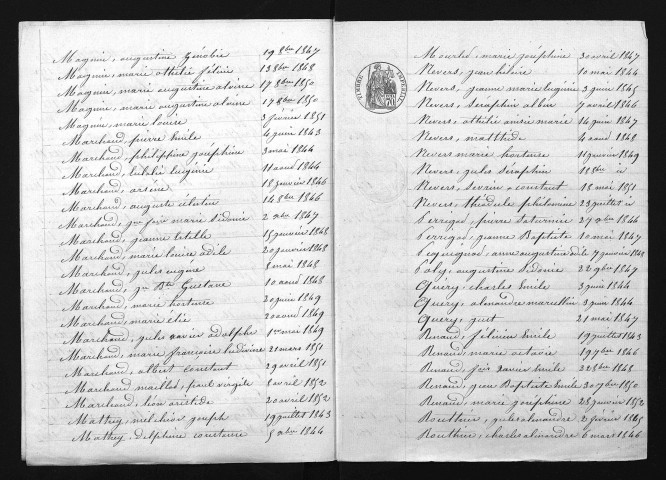 Magnin, augustine Génobie 19 8bre 1847
Magnin, marie othilie félicie 13 8bre 1848
Magnin, marie augustine alvine 17 8bre 1850
Magnin, marie augustine alvine 17 8bre 1850
Magnin, marie louise 3 février 1851
Marchand, pierre Emile 4 juin 1843
Marchand, philippine joséphine 3 mai 1844
Marchand, Eugénie 11 aout 1844
Marchand, arsene 18 janvier 1846
Marchand, auguste célestin 14 8bre 1846
Marchand, marie Sidonie 2 1847
Marchand, jeanne 15 janvier 1848
Marchand, marie louise adèle 20 janvier 1848
Marchand, jules eugene 8 mai 1848
Marchand, jn Bte Gustave 10 aout 1848
Marchand, marie hortense 2 juin 1849
Marchand, marie élie 20 aout 1849
Marchand, jules xavier adolphe 1er mai 1849
Marchand, marie françoise ludivine 21 mars 1851
Marchand, albert constant 29 avril 1851
Marchand maillot, paul virgile 8 avril 1852
Marchand, léon aristide 20 avril 1852
Mathey, melchior joseph 19 juillet 1843
Mathey, delphine constance 5 1844
TIMBRE IMPERIAL
Mourlot, marie joséphine 30 avril 1847
Nevers, jean hilaire 10 mai 1844
Nevers, jeanne marie Eugénie 3 juin 1845
Nevers, séraphin albin 7 avril 1846
Nevers, othilie aimée marie 14 juin 1847
Nevers, matthilde 4 aout 1848
Nevers marie hortense 11 janvier 1849
Nevers, jules séraphin 11 8bre
Nevers, séverin constant 18 mai 1851
Nevers, philomène 23 juillet
Perrigot, pierre Saturnin 27 1846
Perrigot, jeanne Baptiste 10 mai 1847
Pequignot, anne augustine 7 janvier 1849
Poly, augustine Sidonie 22 9bre 1849
Query, charles Emile 3 juin 1844
Query, marcellin 3 juin 1844
Query, 21 mai 1847
Renaud, Emile 19 juillet 1843
Renaud, marie octavie 19 7bre 1846
Renaud, fois xavier Emile 22 8bre 1848
Renaud, jean Baptiste Emile 30 7bre 1850
Renaud, marie joséphine 28 janvier 1852
Routhier, jules alexandre 2 février 1845
Routhier, charles alexandre 6 mars 1846